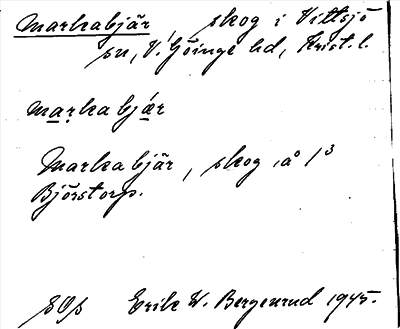 Markabjär skog i Vittsjö
sn, V. Göinge hd, Krist. l.
markabjær
Markabjär, skog å 1³
Björstorp.
Erik W. Bergenrud 1945.